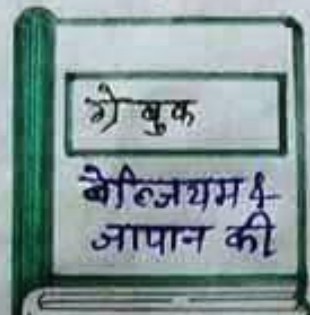 ग्रे बुक
बेल्जियम &
जापान की